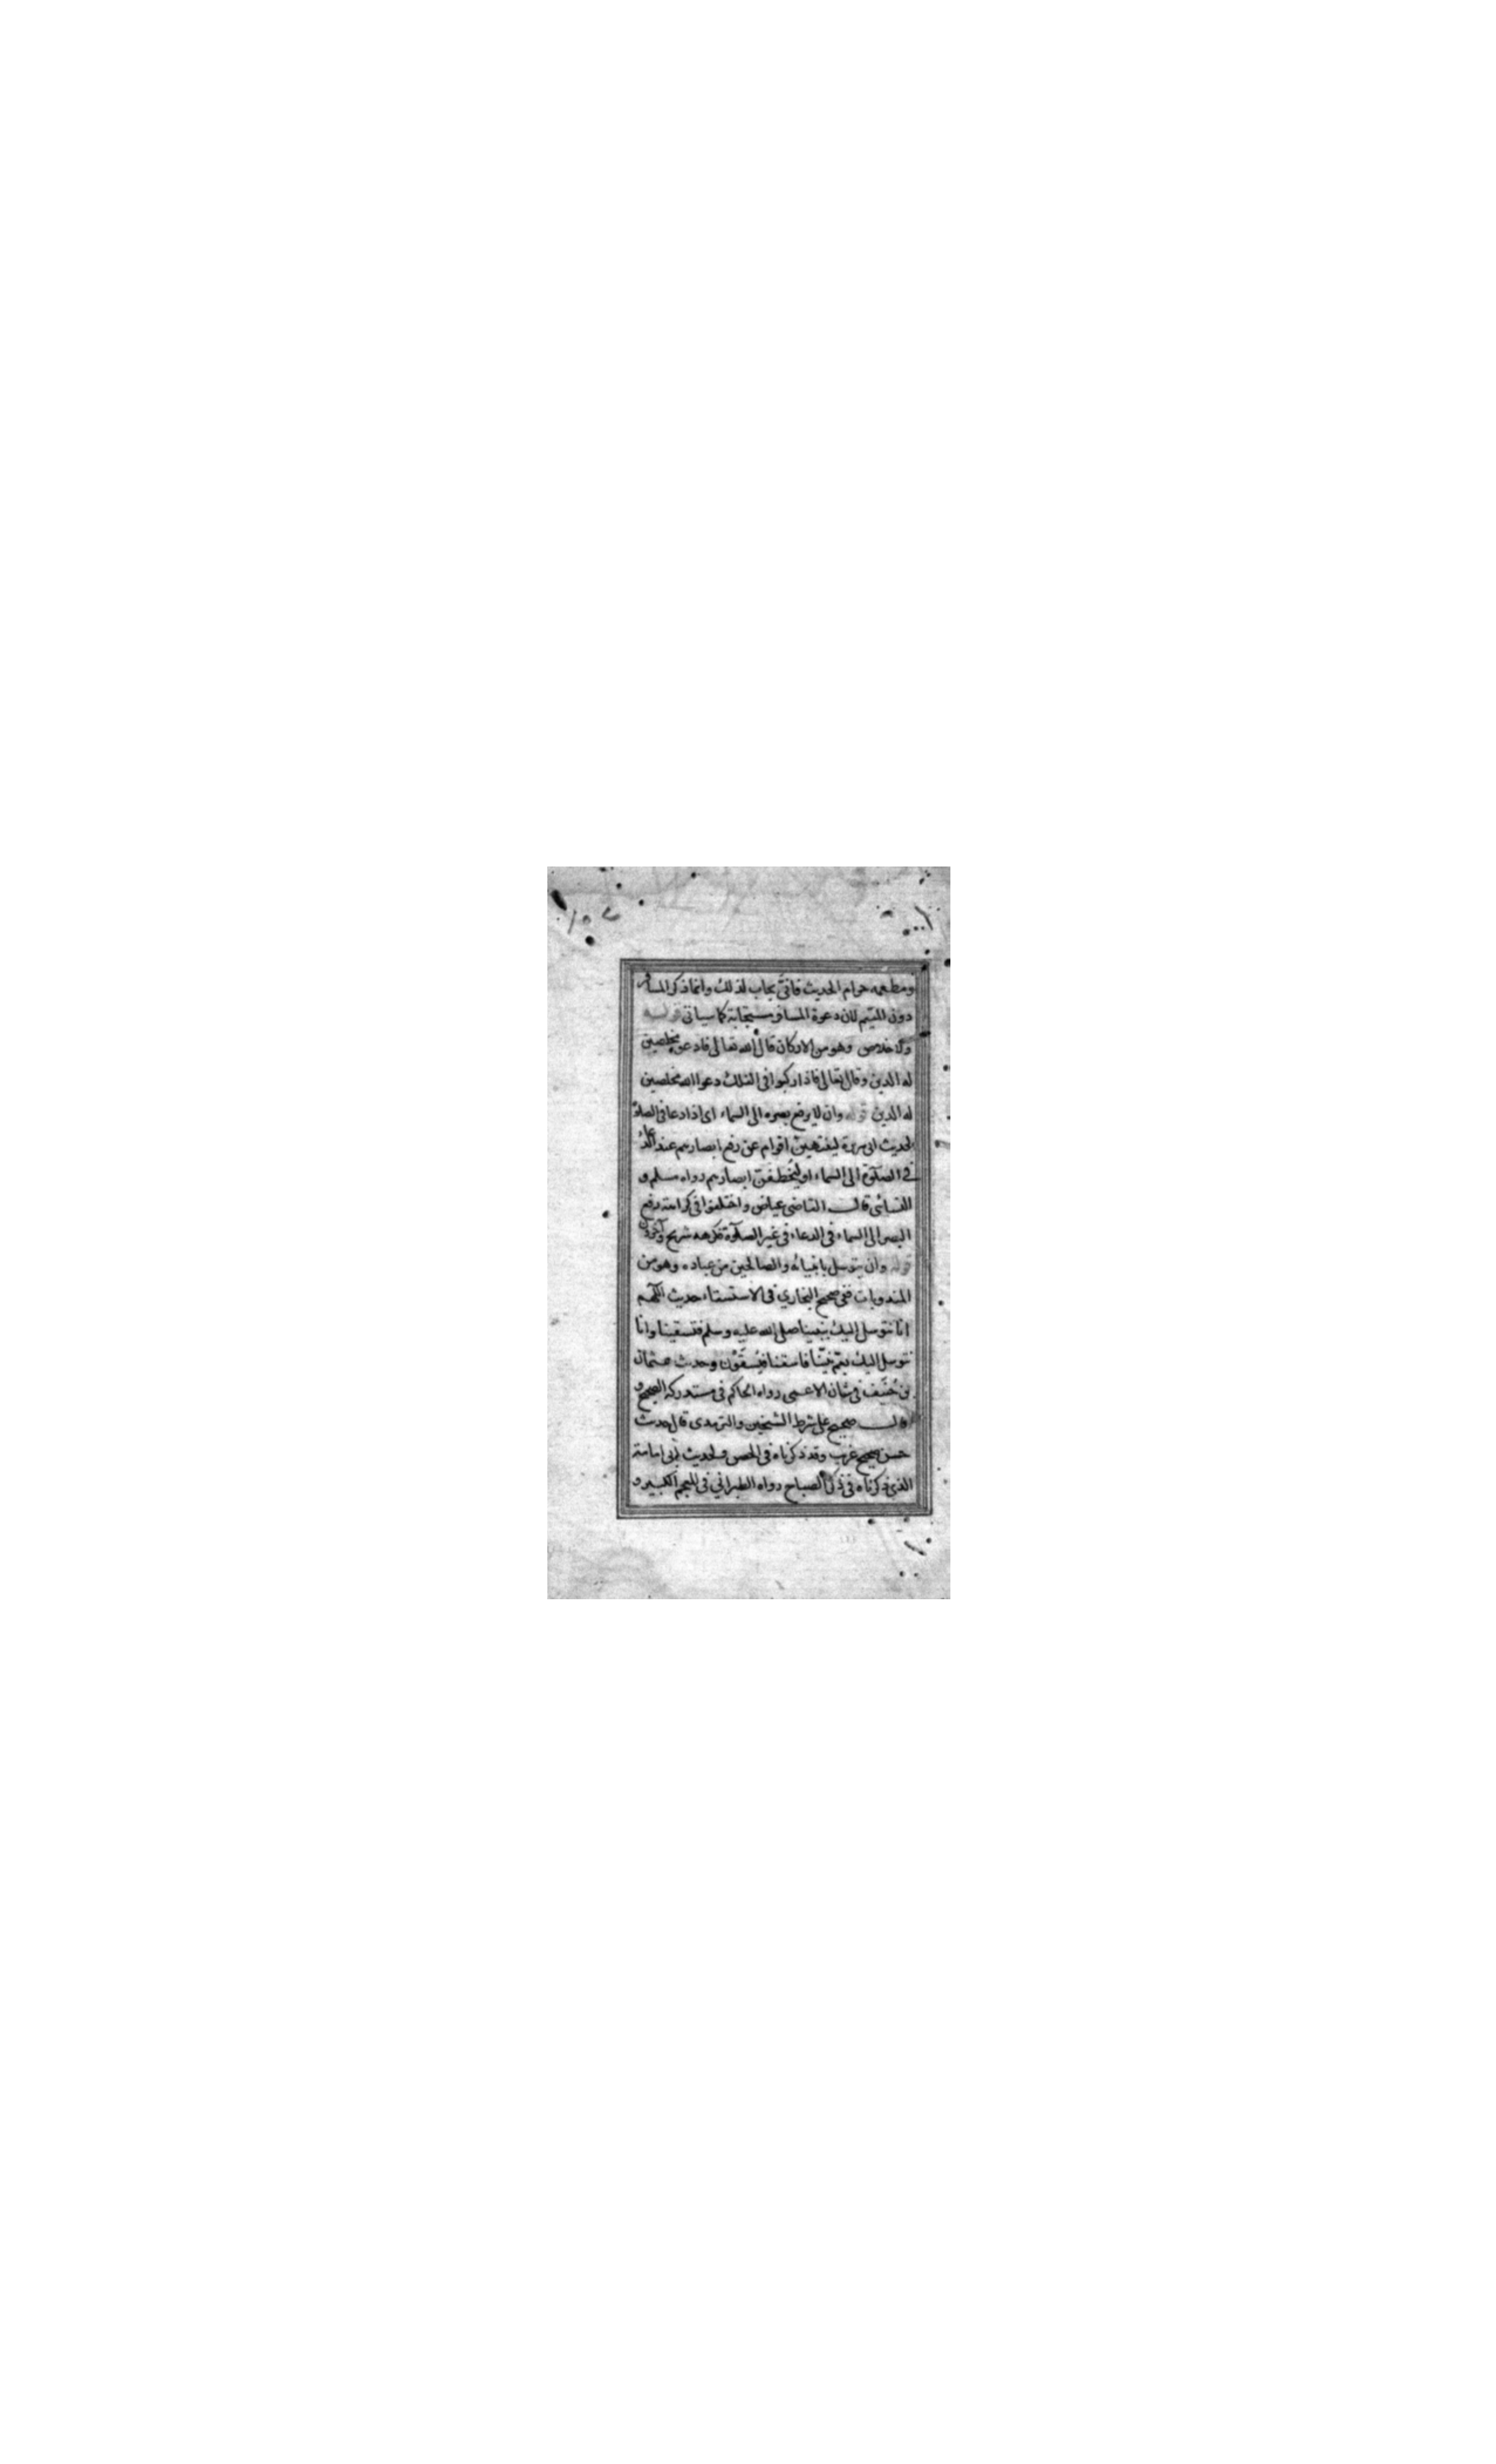 ومطعمه حرام الحديث فانّى يجاب لذلك وانما ذكر المسافر
دون المقيم لان دعوة المسافر مستجابة كما سياتى قوله
والاخلاص وهو من الاركان قال الله تعالى فادعوه مخلصين
له الدين وقال تعالى فاذا ركبوا فى الفلك دعوا الله مخلصين
له الدين قوله وان لا يرفع بصره الى السماء اى اذا دعا فى الصلوة
لحديث ابى هريرة لينتهين اقوام عن رفع ابصارهم عند الدعاء
فى الصلوة الى السماء او ليُخطفن ابصارهم رواه مسلم و
النسائى قال القاضى عياض واختلفوا فى كراهة رفع
البصر الى السماء فى الدعاء فى غير الصلوة فكرهه شريح وآخرون
قوله وان يتوسل بانبيائه والصالحين من عباده وهو من
المندوبات ففى صحيح البخاري فى الاستسقاء حديث اللهم
انا نتوسل اليك بنبينا صلى الله عليه وسلم فتسقينا وانا
نتوسل اليك بعمّ نبيّنا فاسقنا فيُسقَون وحديث عثمان
بن حُنَيف فى شان الاعمى رواه الحاكم فى مستدركه الصحيح و
قال صحيح على شرط الشيخين والترمدى قال حديث
حسن صحيح غريب وقد ذكرناه فى الحصن ولحديث ابى امامة
الذى ذكرناه فى ذكر الصباح رواه الطبراني فى المعجم الكبير و